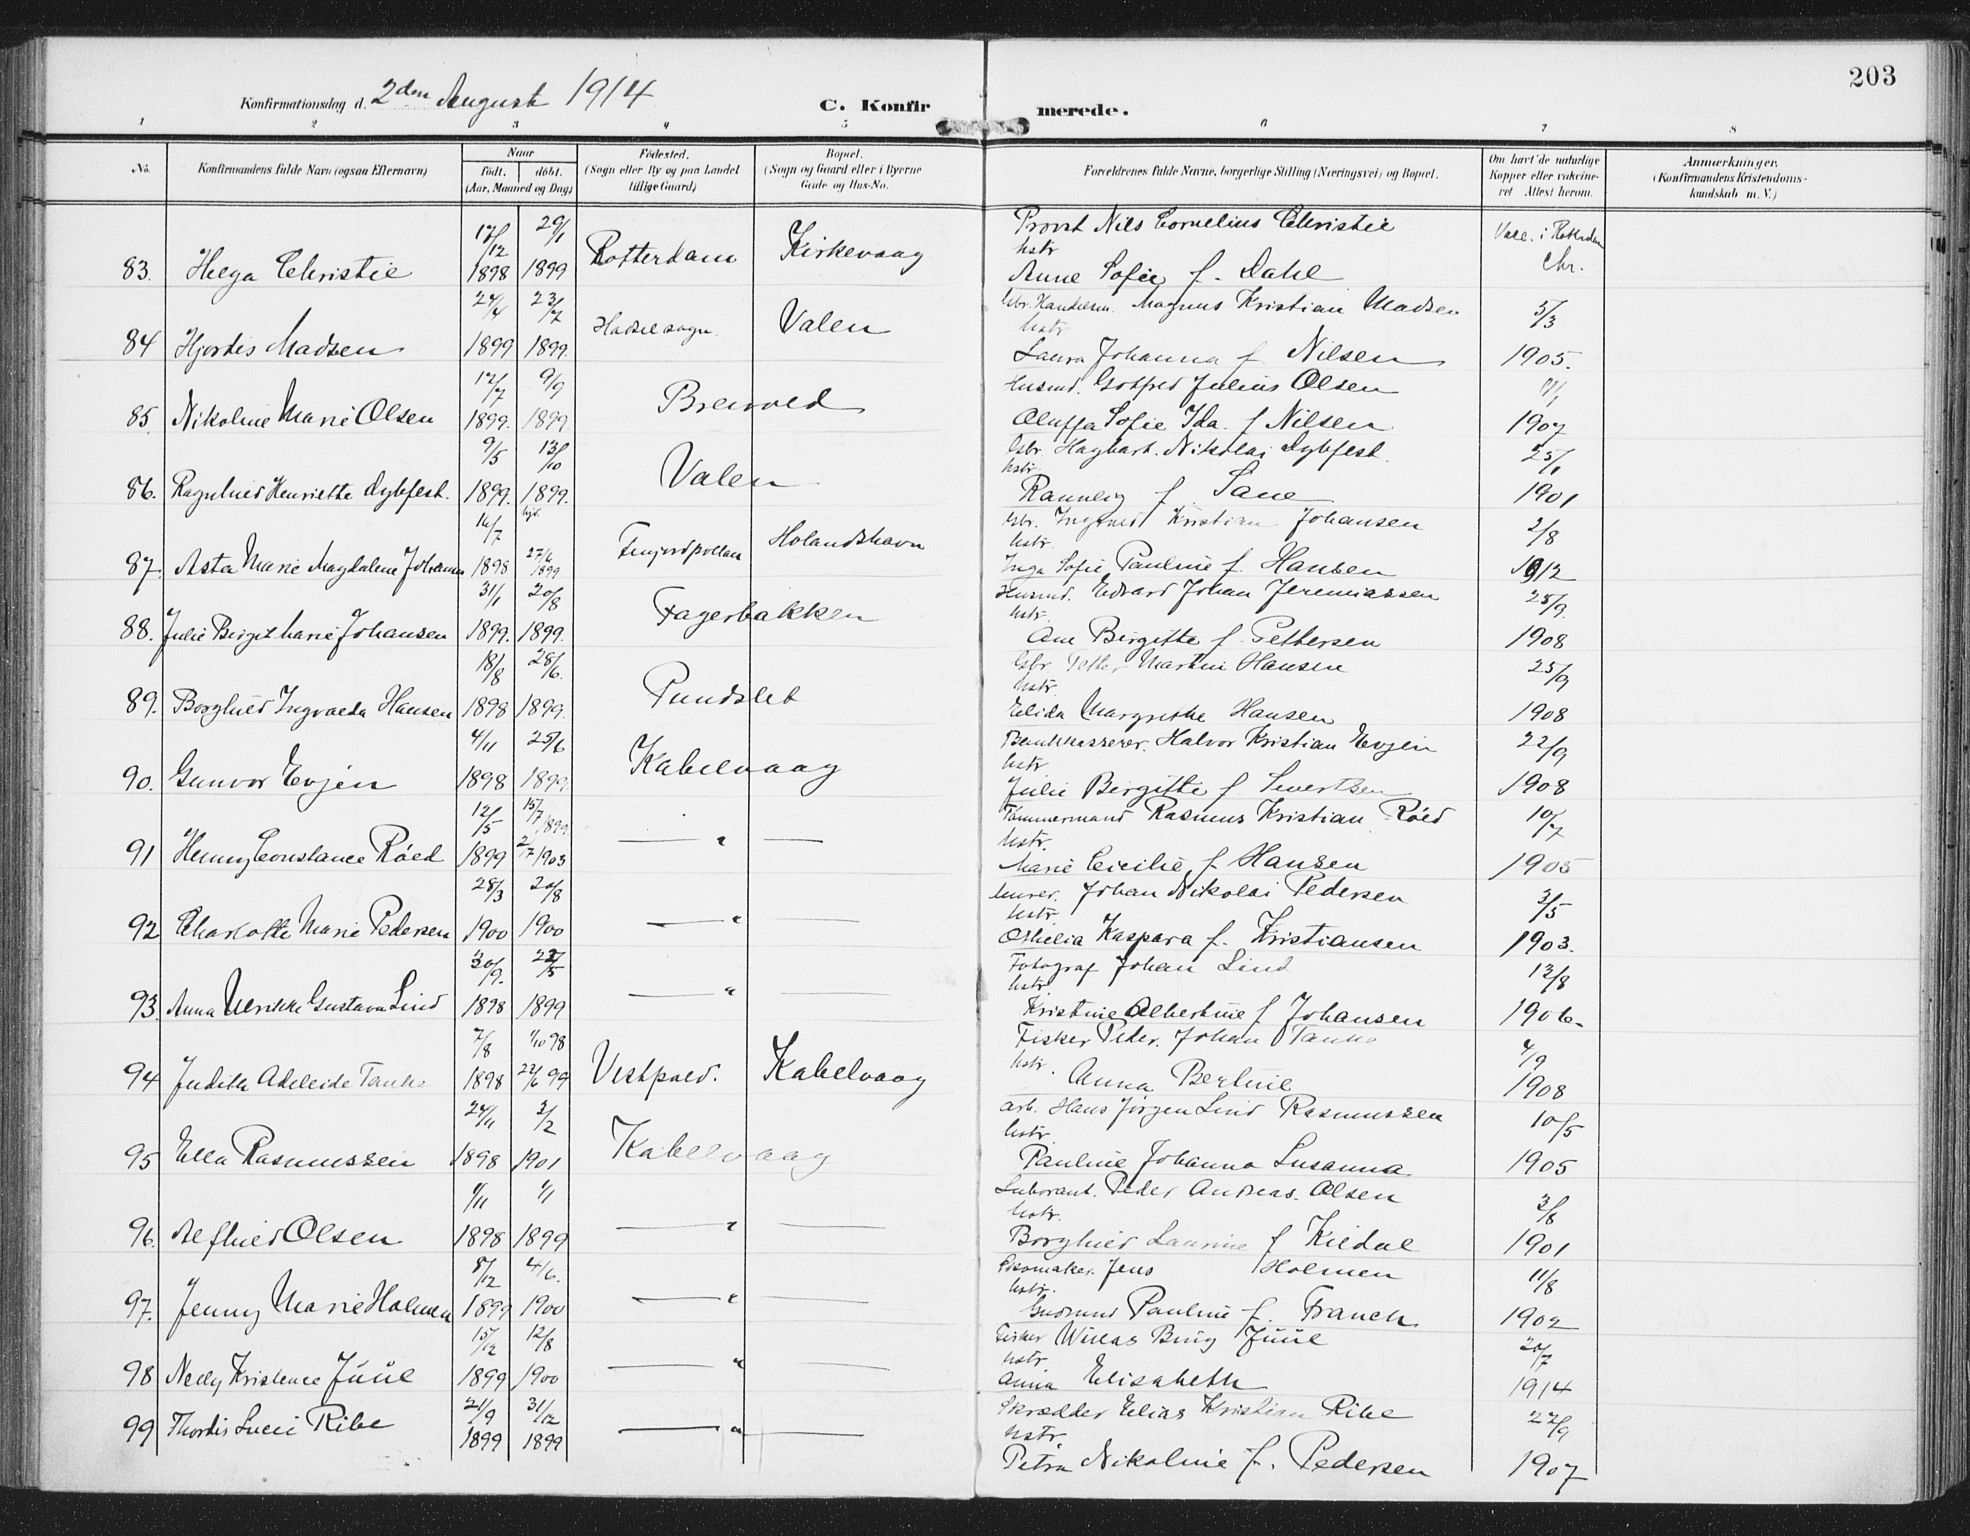 203
Konfirmationsdag d. 2den August 1914
C. Konfirmerede.
1 2 3 4 5 6 7 8
No.
Konfirmandens fulde Navn (ogsaa Efternavn)
Naar
födt. döbt.
(Aar, Maaned og Dag)
Födested.
(Sogn eller By og paa Landet
tillige Gaard)
Bopæl.
(Sogn og Gaard eller i Byerne
Gade og Hus-No.
Forældrenes fulde Navne, borgerlige Stilling (Næringsvei) og Bopæl.
Om havt de naturlige
Kopper eller vakcine-
ret Attest herom.
Anmærkninger.
(Konfirmandens Kristendoms-
kundskab m. V.)
17/12 29/1 Provst Nils Cornelius Christie
83. Helga Christie 1898 1899 Rotterdam Kirkevaag hstr Anne Sofie f. Dahl Chr.
24/4 23/7 Magnus Kristian Madsen 5/3
84 Hjordis Madsen 1899 1899. Hadsel sogn. Valen hstr Laura Johanna f Nilsen 1905.
17/7 9/9 Husmd. Gotfred Julius Olsen
85. Nikoline Marie Olsen 1899. 1899 Breivold Oluffa Sofie Ida. f Nilsen 1907
9/5 13/10 Gbr. Hagbart. Nikolai Dybfest. 25/1
86. Ragnhild Henriette Dybfest. 1899. 1899. Valen hstr Ranneig f. Sane 1901
16/7 hjd. Gbr. Ingvald Kristian Johansen 2/8
87. Asta Marie Magdalene Johansen 1898 27/6 1899 Finjordpollen Holandshavn hstr. Inga Sofie Pauline f. Hansen 1912
31/1 20/8 Husmd. Edvard Johan Jeremiassen 25/9.
88. Julie Birgit Marie Johansen 1899. 1899. Fagerbakken hstr. Ane Birgitte f. Pettersen 1908
18/8 28/6. Gbr Petter Martin Hansen 25/9
89. Borghild Ingvalda Hansen 1898 1899. Pundslet hstr. Elida Margrethe Hansen 1908
4/11 25/6 Bankkasserer. Halvor Kristian Evjen 22/9
90. Gunvor Evjen 1898 1899. Kabelvaag hstr Julie Birgitte f. Sivertsen 1908
12/5 15/7 1899. Tømmermand Rasmus Kristian Røed 10/7
91 Henny Constance Røed 1899 2/7 1903 — " — hstr. Marie Cicilie f Hansen 1905
28/3 20/8 Murer. Johan Nikolai Pedersen 3/5
92 Charlotte Marie Pedersen 1900 1900 — " — hstr. Othelia Kaspara f. Kristiansen 1903.
30/9. 22/5 Fotograf Johan Lind 13/8
93. Anna Ulrikke Gustava Lind 1898 1899 — " — hstr. Kristine Albertine f Johansen 1906.
7/8 1/10 98 Fisker Peder. Johan Tanke 4/9
94 Judith Adeleide Tanke 1898 22/6 99 Vestpold. Kabelvaag hstr. Anna Bertine 1908
24/11 3/2 Arb. Hans Jørgen Lind Rasmussen 10/5
95 Ella Rasmussen 1898 1901 Kabelvaag hstr. Pauline Johanna Susanna 1905
1/1 Peder Andreas. Olsen 3/8
96. Alfhild Olsen 1898 1899 — " — hstr. Borghild Laurine f Kildal 1901
8/12 4/6. Skomaker. Jens Holmen 11/8
97. Jenny Marie Holmen 1899 1900 — " — hstr. Gudrund Pauline f. Franck 1902
15/12 12/8 Fisker Willas Bing Juul 20/7
98 Nelly Kristence Juul 1899 1900 — " — hstr Anna Elisabeth 1914
21/9 31/12 Skrædder Elias Kristian Ribe 27/9
99 Thordis Lucie Ribe 1899 1899 — " — hstr. Petra Nikoline f. Pedersen 1907